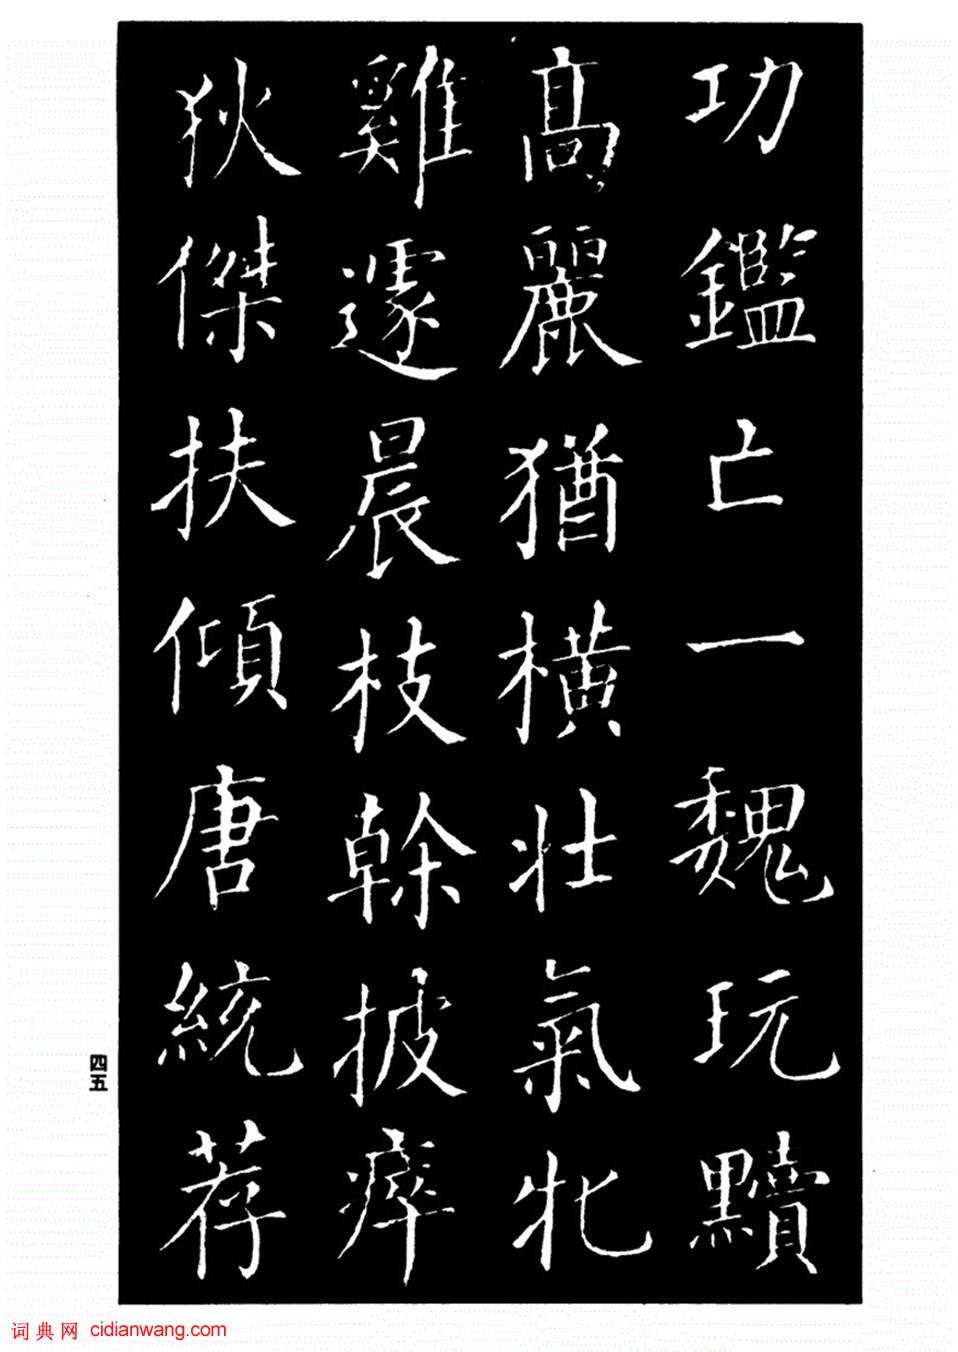 功鑑亡一魏玩黷
高麗猶橫壯氣牝
雞遽晨枝幹披瘁
狄傑扶傾唐統荐
四五
词典网 cidianwang.com